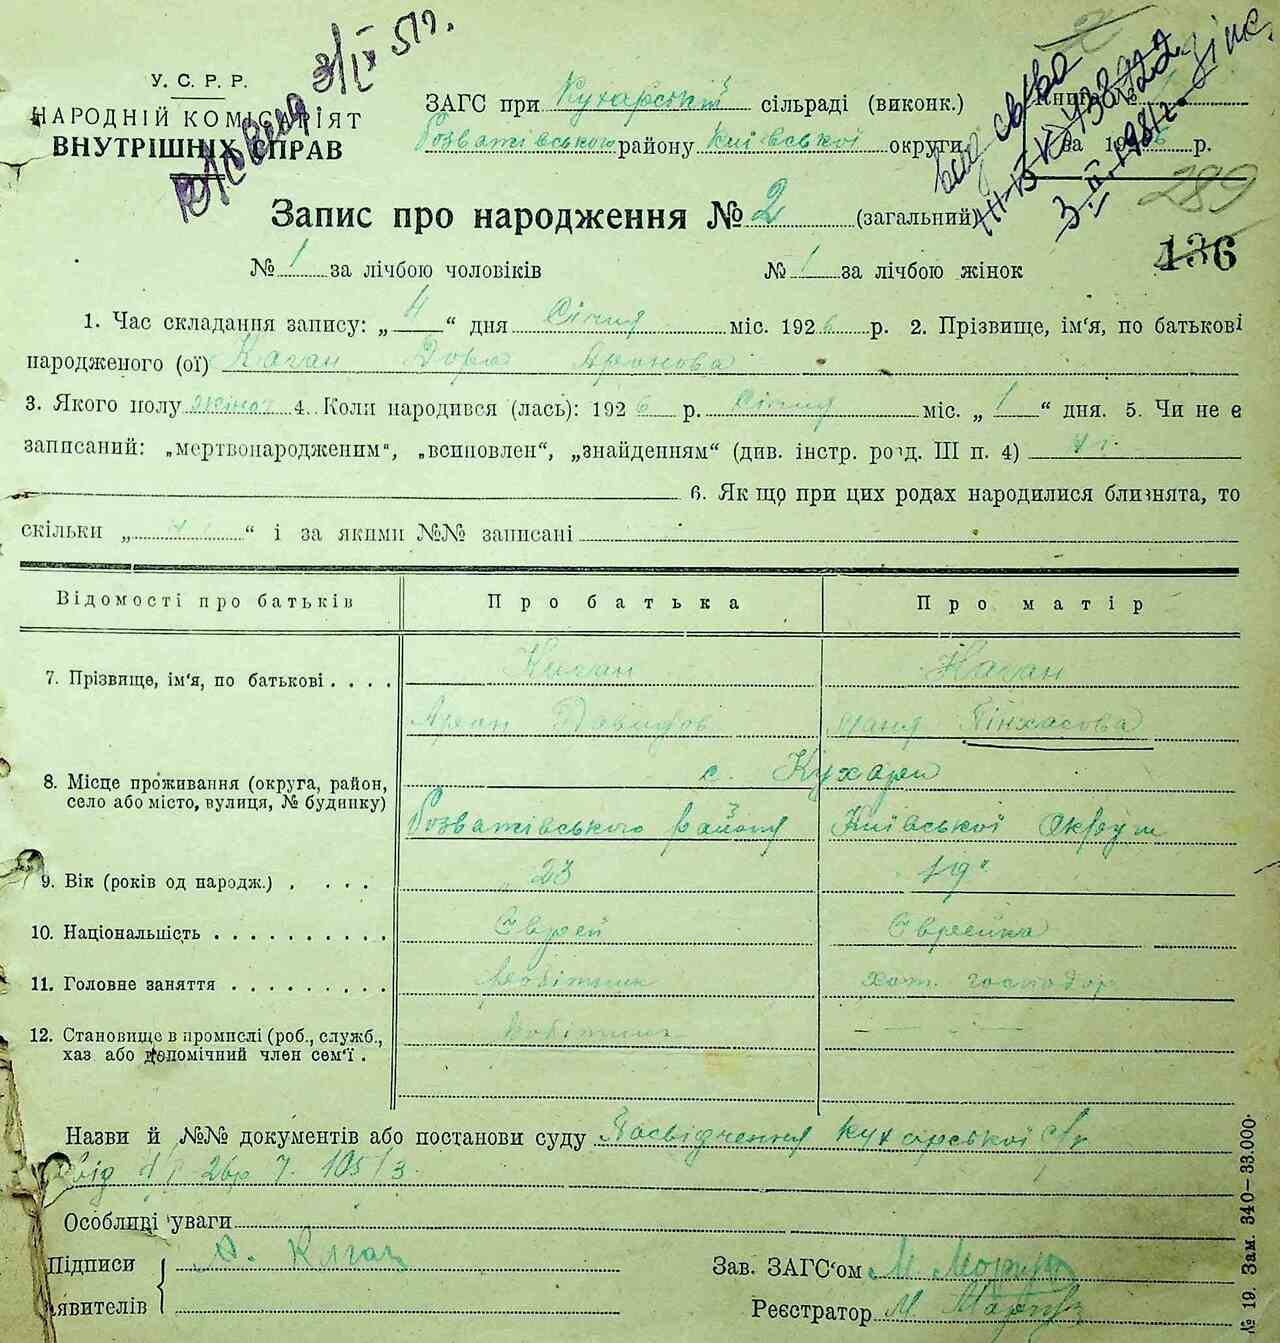 У. С. Р. Р.
НАРОДНІЙ КОМІСАРІЯТ
ВНУТРІШНІХ СПРАВ
3/IX 51р.
ЗАГС при Кухарській сільраді (виконк.)
Розватівського району Київської округи
Книга №
за 1926 р.
3.II.1981г.
289
136
Запис про народження № 2 (загальний)
№ 1 за лічбою чоловіків № 1 за лічбою жінок
1. Час складання запису: „4“ дня Січня міс. 1926 р. 2. Прізвище, ім'я, по батькові
народженого (ої) Каган Дора Аронова
3. Якого полу жіноч 4. Коли народився (лась): 1926 р. Січня міс. „1“ дня. 5. Чи не є
записаний: „мертвонародженим“, „всиновлен“, „знайденням“ (див. інстр. розд. III п. 4)
6. Як що при цих родах народилися близнята, то
скільки „ “ і за якими №№ записані
Відомості про батьків Про батька Про матір
7. Прізвище, ім'я, по батькові . . . . Каган Каган
Арон Давидов Пінхасова
8. Місце проживання (округа, район, с. Кухари
село або місто, вулиця, № будинку) Розватівського району Київської Округи
9. Вік (років од народж.) . . . . 23 19
10. Національність . . . . . . . . . . Єврей Єврейка
11. Головне заняття . . . . . . . . . Робітник хат. господар
12. Становище в промислі (роб., служб., Робітник
хаз або допомічний член сем'ї .
Назви й №№ документів або постанови суду Посвідчення Кухарської С/р
від 4/I 26р
Особливі уваги
Підписи А. Каган Зав. ЗАГС'ом М.
явителів Реєстратор М.
№ 19. Зам. 340—33.000.